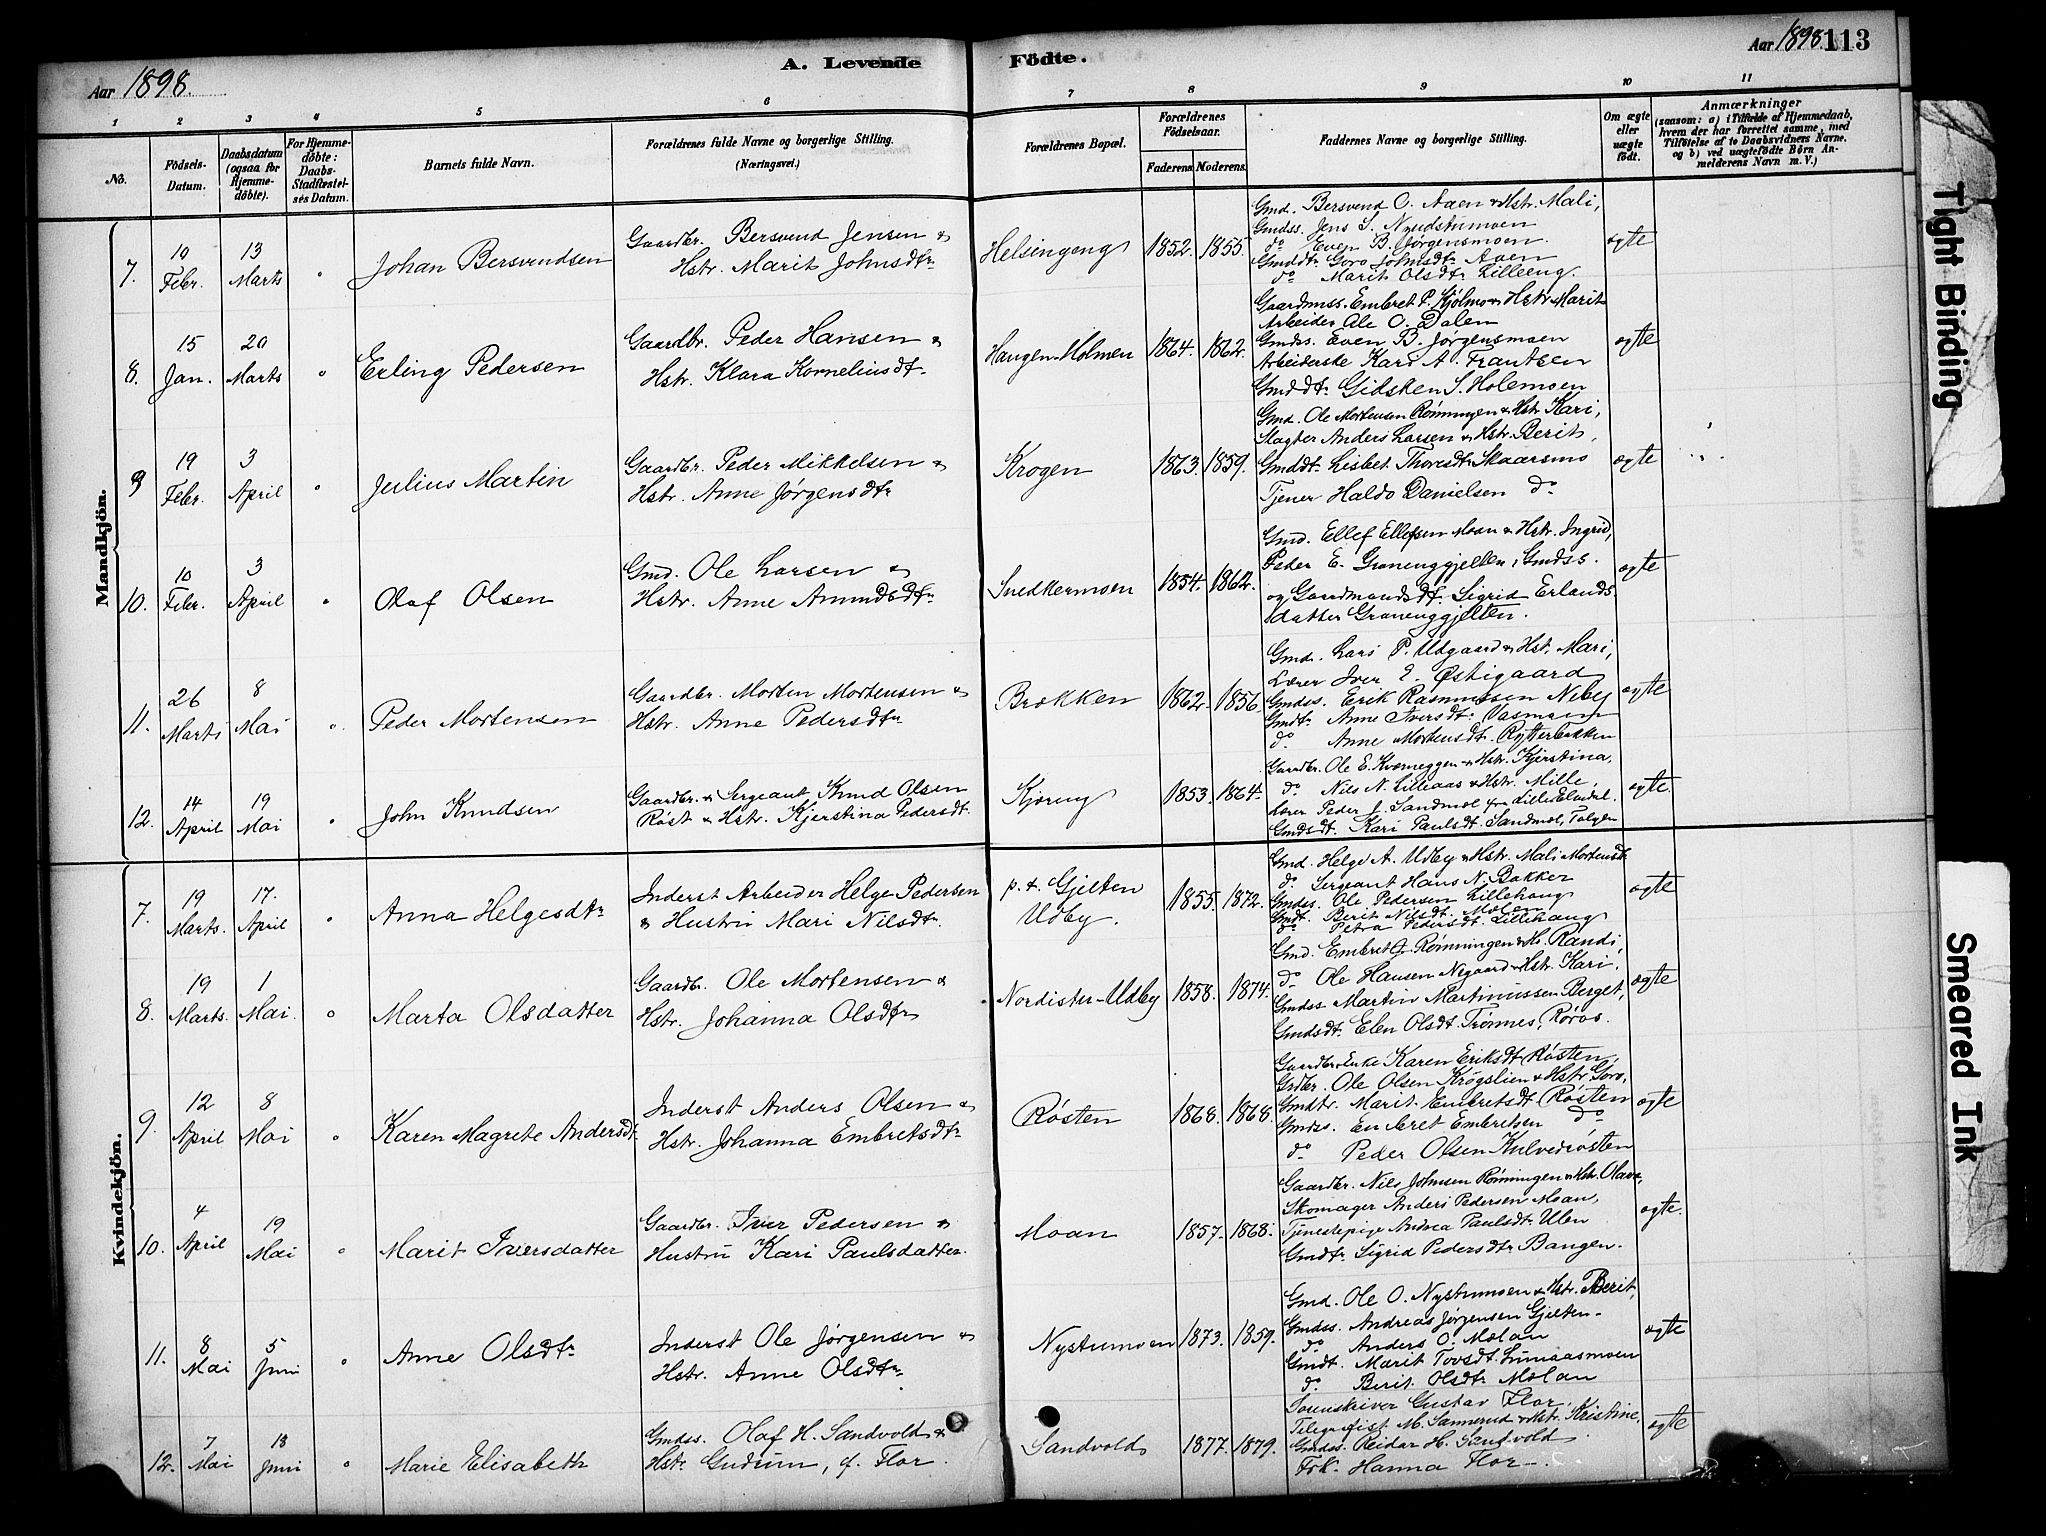 Aar 1898.
A. Levende
Födte.
Aar 1898. 113
1 2 3 4 5 6 7 8 9 10 11
No.
Födsels-Datum.
Daabsdatum (ogsaa for Hjemmedöbte).
For Hjemmedöbte: Daabs-Stadfæstelses Datum.
Barnets fulde Navn.
Forældrenes fulde Navne og borgerlige Stilling. (Næringsvei.)
Forældrenes Bopæl.
Forældrenes Födselsaar.
Faderens. Moderens.
Faddernes Navne og borgerlige Stilling.
Om ægte eller uægte födt.
Anmærkninger (saasom: a) i Tilfælde af Hjemmedaab, hvem der har forrettet samme, med Tilföielse af to Daabsvidners Navne. og b) ved uægtefödte Börn Anmelderens Navn m. V.)
Mandkjön.
7. 10 Febr. 13 Marts " Johan Bersvendsen
Gaardbr. Bersvend Jensen &
Hstr. Marit Johnsdtr.
Helsingeng 1852. 1855.
Gmd. Bersvend O. Aaen & Hstr. Mali,
Gmdss. Jens S. Nyudstumoen
do Even B. Jørgensmoen.
Gmddtr. Goro Johnsdtr. Aaen
do Marit Olsdtr. Lilleeng.
ægte
8. 15 Jan. 20 Marts " Erling Pedersen
Gaardbr. Peder Hansen &
Hstr. Klara Korneliusdtr.
Haugen-Holmen 1864. 1862.
Gaardmss. Embret P. Kjølmo & Hstr. Marit
Arbeider Ole O. Dalen
Gmdss. Even B. Jørgensmoen
Arbeiderske Kari A. Frantsen
Gmddtr. Gidsken S. Holemoen
ægte
9 19 Febr. 3 April " Julius Martin
Gaardbr. Peder Mikkelsen &
Hstr. Anne Jørgensdtr
Krogen 1863. 1859.
Gmd. Ole Mortensen Rønningen & Hstr. Kari,
Slagter Anders Larsen & Hstr. Berit,
Gmddtr. Lisbet Thoresdtr. Skaarsmo
Tjener Haldo Danielsen do
ægte
10. 10 Febr. 3 April " Olaf Olsen
Gmd. Ole Larsen &
Hstr. Anne Amundsdtr.
Snedkermoen 1854. 1862.
Gmd. Ellef Ellefsen Moan & Hstr. Ingrid,
Peder E. Grønenggjelten, Gmdss.
og Gaardmandsdt. Sigrid Erlands
datter Grønenggjelten.
ægte
11. 26 Marts 8 Mai " Peder Mortensen
Gaardbr. Morten Mortensen &
Hstr. Anne Pedersdtr
Brækken 1862. 1856.
Gmd. Lars P. Udgaard & Hst. Mari,
Lærer Iver E. Østigaard
Gmdss. Erik Rasmussen Neby
Gmdt. Anne Iversdt. Vasmoen
do Anne Mortensdt. Rytterbakken
ægte
12. 14 April 19 Mai " John Knudsen
Gaardbr. & Sergeant Knud Olsen
Røst & Hstr. Kjerstina Pedersdt.
Kjøreng 1853. 1864.
Gaardbr. Ole E. Kværneggen & Hstr. Kjerstina,
do Nils N. Lilleaas & Hstr. Mille,
Lærer Peder J. Sandmoel fra Lille Elvedal.
Gmdsdt. Kari Paulsdt. Sandmoel, Tolgen
ægte.
Kvindekjön.
7. 19 Marts. 17. April " Anna Helgesdtr
Inderst Arbeider Helge Pedersen
& Hustru Mari Nilsdtr.
p. t. Gjelten
Udby. 1855. 1872.
Gmd. Helge A. Udby & Hstr. Mali Mortensdt.
do Sergeant Hans N. Bakken
Gmdss. Ole Pedersen Lillehaug
Gmdt. Berit Nilsdt. Moløen
do Petra Pedersdt. Lillehaug
ægte
8. 19 Marts. 1 Mai. " Marta Olsdatter
Gaardbr. Ole Mortensen &
Hstr. Johanna Olsdtr
Nordistu-Udby 1858. 1874.
Gmd. Embret J. Rønningen & H. Randi,
do Ole Hansen Negaard & Hstr. Kari.
Gmdss. Martin Martinussen Berget,
Gmdsdt. Elen Olsdt. Trønnes, Røros.
ægte
9. 12 April 8 Mai " Karen Magrete Andersdt.
Inderst Anders Olsen &
Hstr. Johanna Embretsdtr.
Røsten 1868. 1868.
Gaardbr. Enke Karen Eriksdt. Røsten,
Grdbr. Ole Olsen Krogslien & Hstr. Goro,
Gmdtr. Marit Embretsdt. Røsten
Gmdss. Embret Embretsen do
do Peder Olsen Kulvedrøsten
ægte
10. 4 April 19 Mai " Marit Iversdatter
Gaardbr. Iver Pedersen &
Hustru Kari Paulsdatter.
Moan 1857. 1868.
Gaardbr. Nils Johnsen Rønningen & Hst. Olava,
Skomager Anders Pedersen Moan,
Tjenestepige Andrea Paulsdtr. Ulen
Gmdtr. Sigrid Pedersdtr. Bangen.
ægte.
11. 8 Mai 5 Juni " Anne Olsdtr.
Inderst Ole Jørgensen &
Hstr. Anne Olsdtr.
Nystumoen 1873. 1859.
Gmd. Ole O. Nystumoen & Hst. Berit,
Gmdss. Andreas Jørgensen Gjelten.
do Anders O. Moløn
Gmdt. Marit Tovsdt.
do Berit Olsdtr. Moløn
ægte
12. 7 Mai 18 Juni " Marie Elisabeth
Gmdss. Olaf H. Sandvold &
Hstr. Gudrun, f. Flor.
Sandvold 1877. 1879.
Sorenskriver Gustav Flor
Telegrafist M. Sannerud & Hstr. Kristine,
Gmdss. Reidar H. Sandvold
Frk. Hanna Flor.
ægte
Tight Binding
Smeared Ink